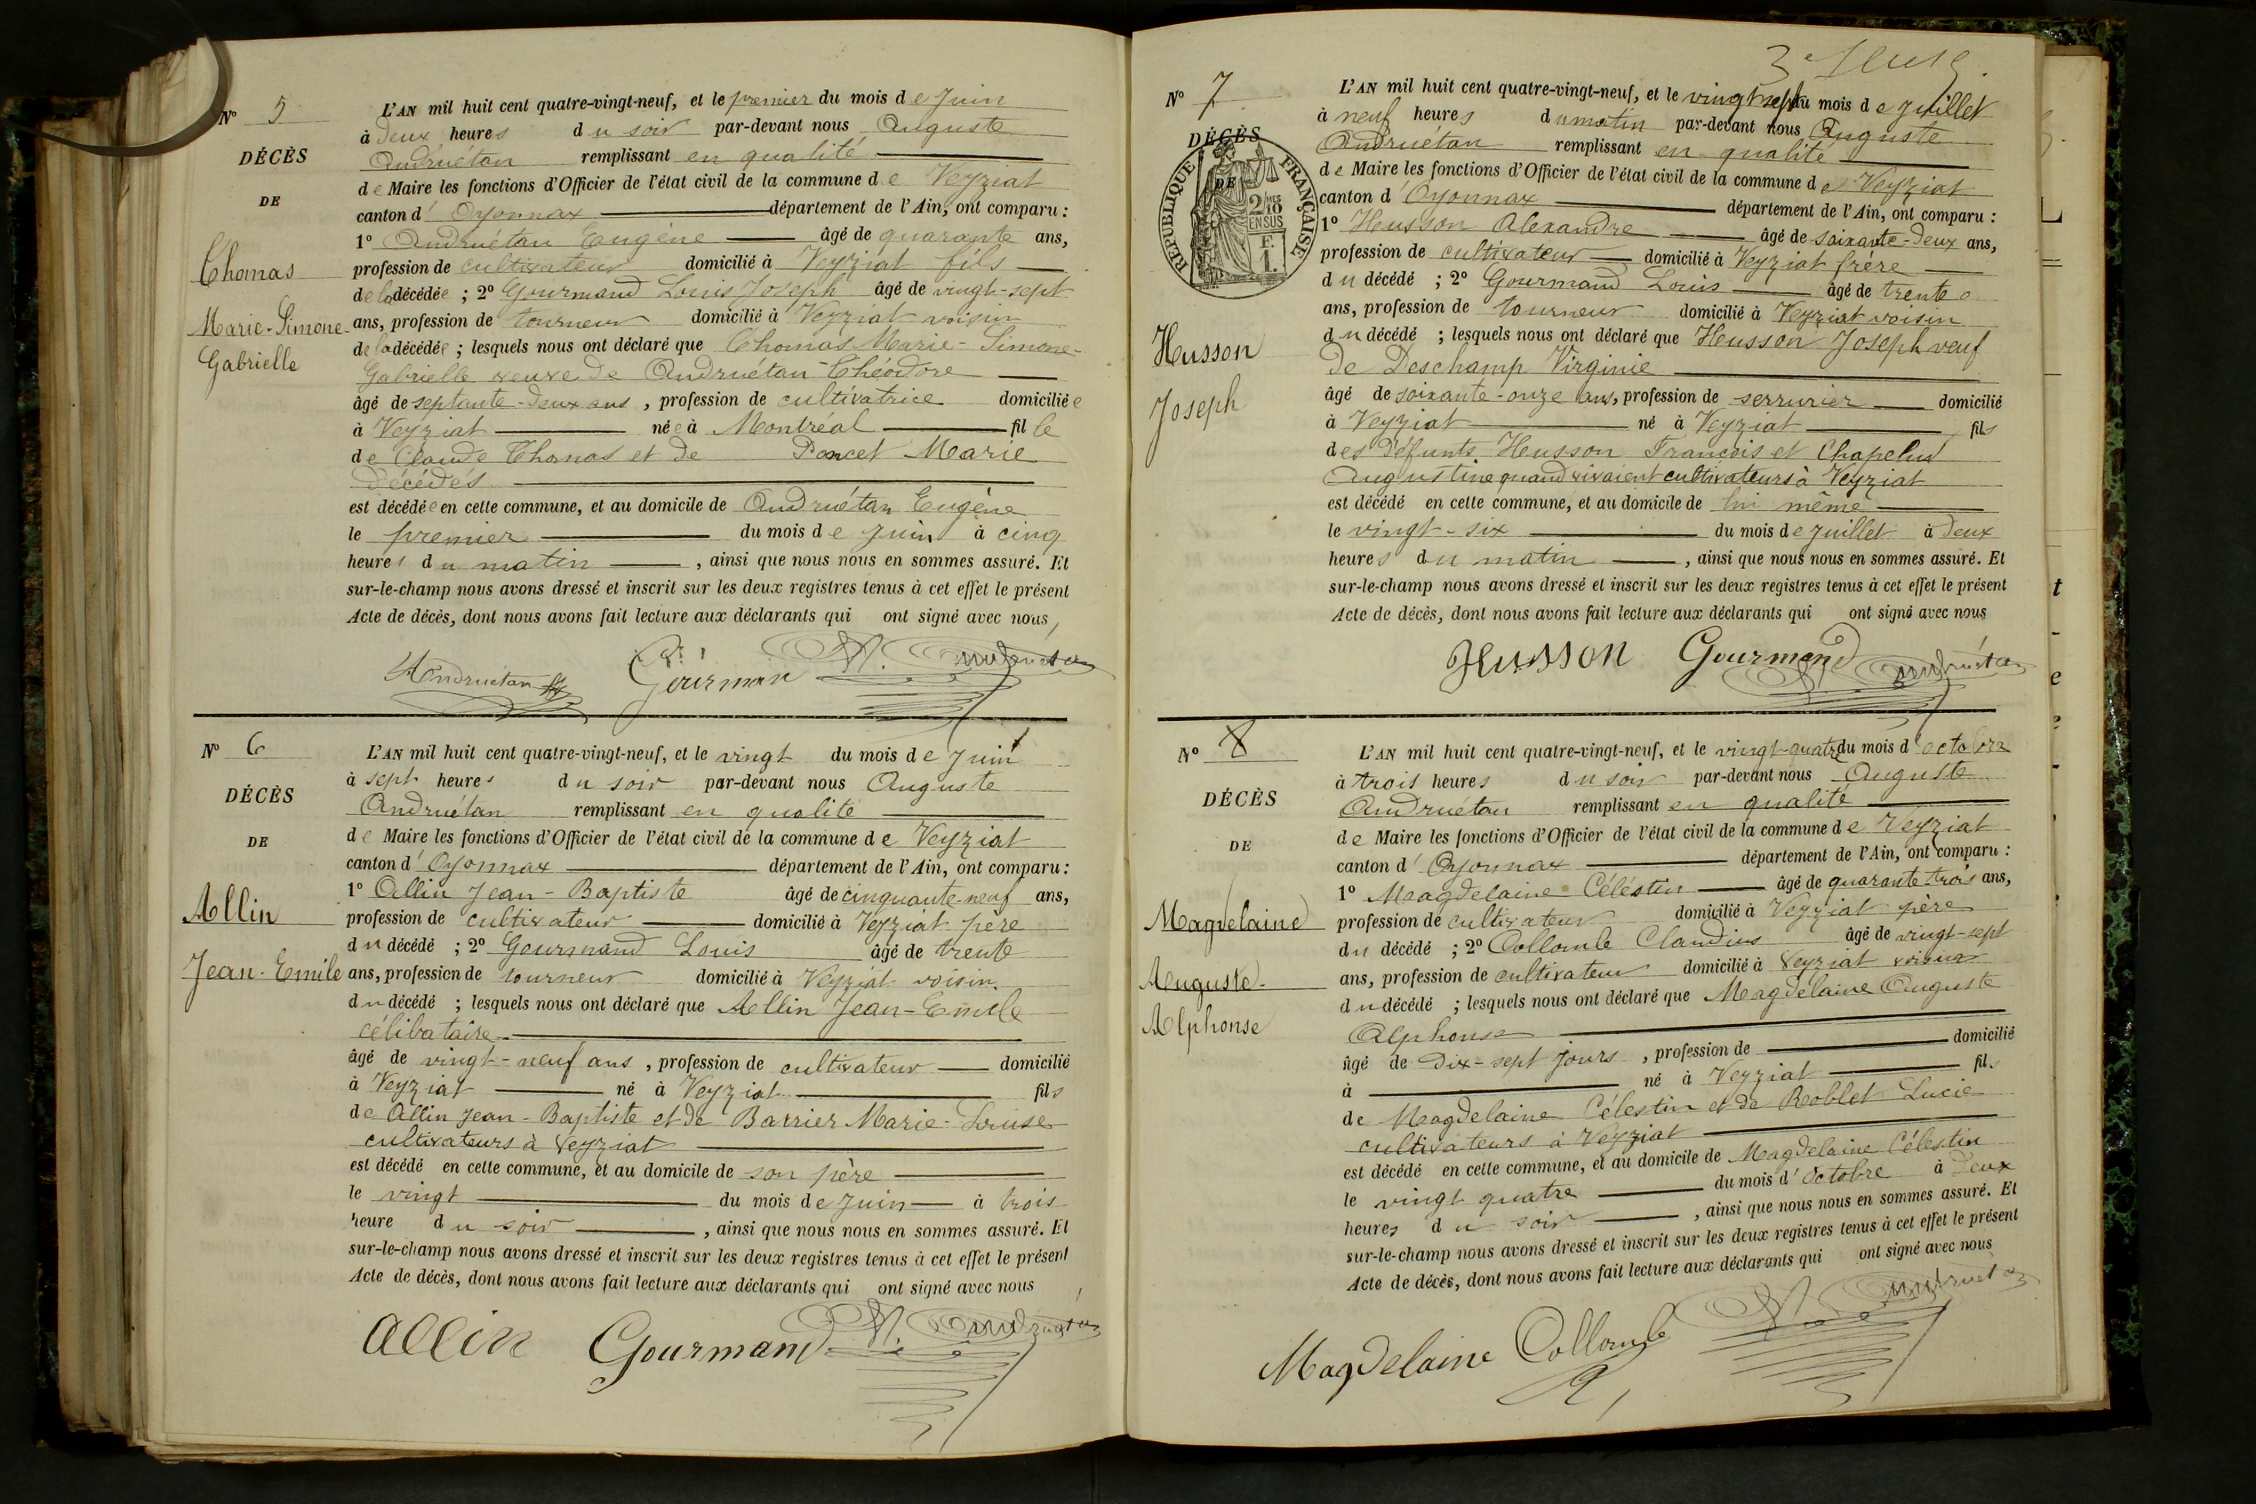 N° 5
DÉCÈS
DE
Thomas
Marie-Simone-
Gabrielle
L'AN mil huit cent quatre-vingt-neuf, et le premier du mois de Juin
à deux heures du soir par-devant nous Auguste
Andruétan remplissant en qualité
de Maire les fonctions d'Officier de l'état civil de la commune de Veyziat
canton d'Oyonnax département de l'Ain, ont comparu :
1° Andruétan Eugène âgé de quarante ans,
profession de cultivateur domicilié à Veyziat fils
de la décédée ; 2° Gourmand Louis Joseph âgé de vingt-sept
ans, profession de tourneur domicilié à Veyziat voisin
de la décédée ; lesquels nous ont déclaré que Thomas Marie-Simone-
Gabrielle veuve de Andruétan Théodore
âgé de septante-deux ans, profession de cultivatrice domiciliée
à Veyziat née à Montréal fille
de Claude Thomas et de Poncet Marie
décédés
est décédée en cette commune, et au domicile de Andruétan Eugène
le premier du mois de Juin à cinq
heures du matin, ainsi que nous nous en sommes assuré. Et
sur-le-champ nous avons dressé et inscrit sur les deux registres tenus à cet effet le présent
Acte de décès, dont nous avons fait lecture aux déclarants qui ont signé avec nous,
Andruétan Gourman A. Andruétan
N° 6
DÉCÈS
DE
Allin
Jean-Emile
L'AN mil huit cent quatre-vingt-neuf, et le vingt du mois de Juin
à sept heures du soir par-devant nous Auguste
Andruétan remplissant en qualité
de Maire les fonctions d'Officier de l'état civil de la commune de Veyziat
canton d'Oyonnax département de l'Ain, ont comparu :
1° Allin Jean-Baptiste âgé de cinquante-neuf ans,
profession de cultivateur domicilié à Veyziat père
du décédé ; 2° Gourmand Louis âgé de trente
ans, profession de tourneur domicilié à Veyziat voisin.
du décédé ; lesquels nous ont déclaré que Allin Jean-Emile
célibataire
âgé de vingt-neuf ans, profession de cultivateur domicilié
à Veyziat né à Veyziat fils
de Allin Jean-Baptiste et de Barrier Marie-Louise
cultivateurs à Veyziat
est décédé en cette commune, et au domicile de son père
le vingt du mois de Juin à trois
heure du soir, ainsi que nous nous en sommes assuré. Et
sur-le-champ nous avons dressé et inscrit sur les deux registres tenus à cet effet le présent
Acte de décès, dont nous avons fait lecture aux déclarants qui ont signé avec nous
Allin Gourmand A. Andruétan
N° 7
DÉCÈS
DE
RÉPUBLIQUE FRANÇAISE
2 10 MES
EN SUS
F.
1.
Husson
Joseph
L'AN mil huit cent quatre-vingt-neuf, et le vingt sept du mois de Juillet
à neuf heures du matin par-devant nous Auguste
Andruétan remplissant en qualité
de Maire les fonctions d'Officier de l'état civil de la commune de Veyziat
canton d'Oyonnax département de l'Ain, ont comparu :
1° Husson Alexandre âgé de soixante-deux ans,
profession de cultivateur domicilié à Veyziat frère
du décédé ; 2° Gourmand Louis âgé de trente
ans, profession de tourneur domicilié à Veyziat voisin
du décédé ; lesquels nous ont déclaré que Husson Joseph veuf
de Deschamp Virginie
âgé de soixante-onze ans, profession de serrurier domicilié
à Veyziat né à Veyziat fils
des défunts Husson François et Chapelus
Augustine quand vivaient cultivateurs à Veyziat
est décédé en cette commune, et au domicile de lui même
le vingt-six du mois de juillet à deux
heures du matin, ainsi que nous nous en sommes assuré. Et
sur-le-champ nous avons dressé et inscrit sur les deux registres tenus à cet effet le présent
Acte de décès, dont nous avons fait lecture aux déclarants qui ont signé avec nous
Husson Gourmand A. Andruétan
N° 8
DÉCÈS
DE
Magdelaine
Auguste-
Alphonse
L'AN mil huit cent quatre-vingt-neuf, et le vingt-quatre du mois d'octobre
à trois heures du soir par-devant nous Auguste
Andruétan remplissant en qualité
de Maire les fonctions d'Officier de l'état civil de la commune de Veyziat
canton d'Oyonnax département de l'Ain, ont comparu :
1° Magdelaine Célestin âgé de quarante-trois ans,
profession de cultivateur domicilié à Veyziat père
du décédé ; 2° Collombe Claudius âgé de vingt-sept
ans, profession de cultivateur domicilié à Veyziat voisin
du décédé ; lesquels nous ont déclaré que Magdelaine Auguste
Alphonse
âgé de dix-sept jours, profession de domicilié
à né à Veyziat fils
de Magdelaine Célestin et de Roblet Lucie
cultivateurs à Veyziat
est décédé en cette commune, et au domicile de Magdelaine Célestin
le vingt quatre du mois d'octobre à deux
heures du soir, ainsi que nous nous en sommes assuré. Et
sur-le-champ nous avons dressé et inscrit sur les deux registres tenus à cet effet le présent
Acte de décès, dont nous avons fait lecture aux déclarants qui ont signé avec nous
Magdelaine Collombe A. Andruétan